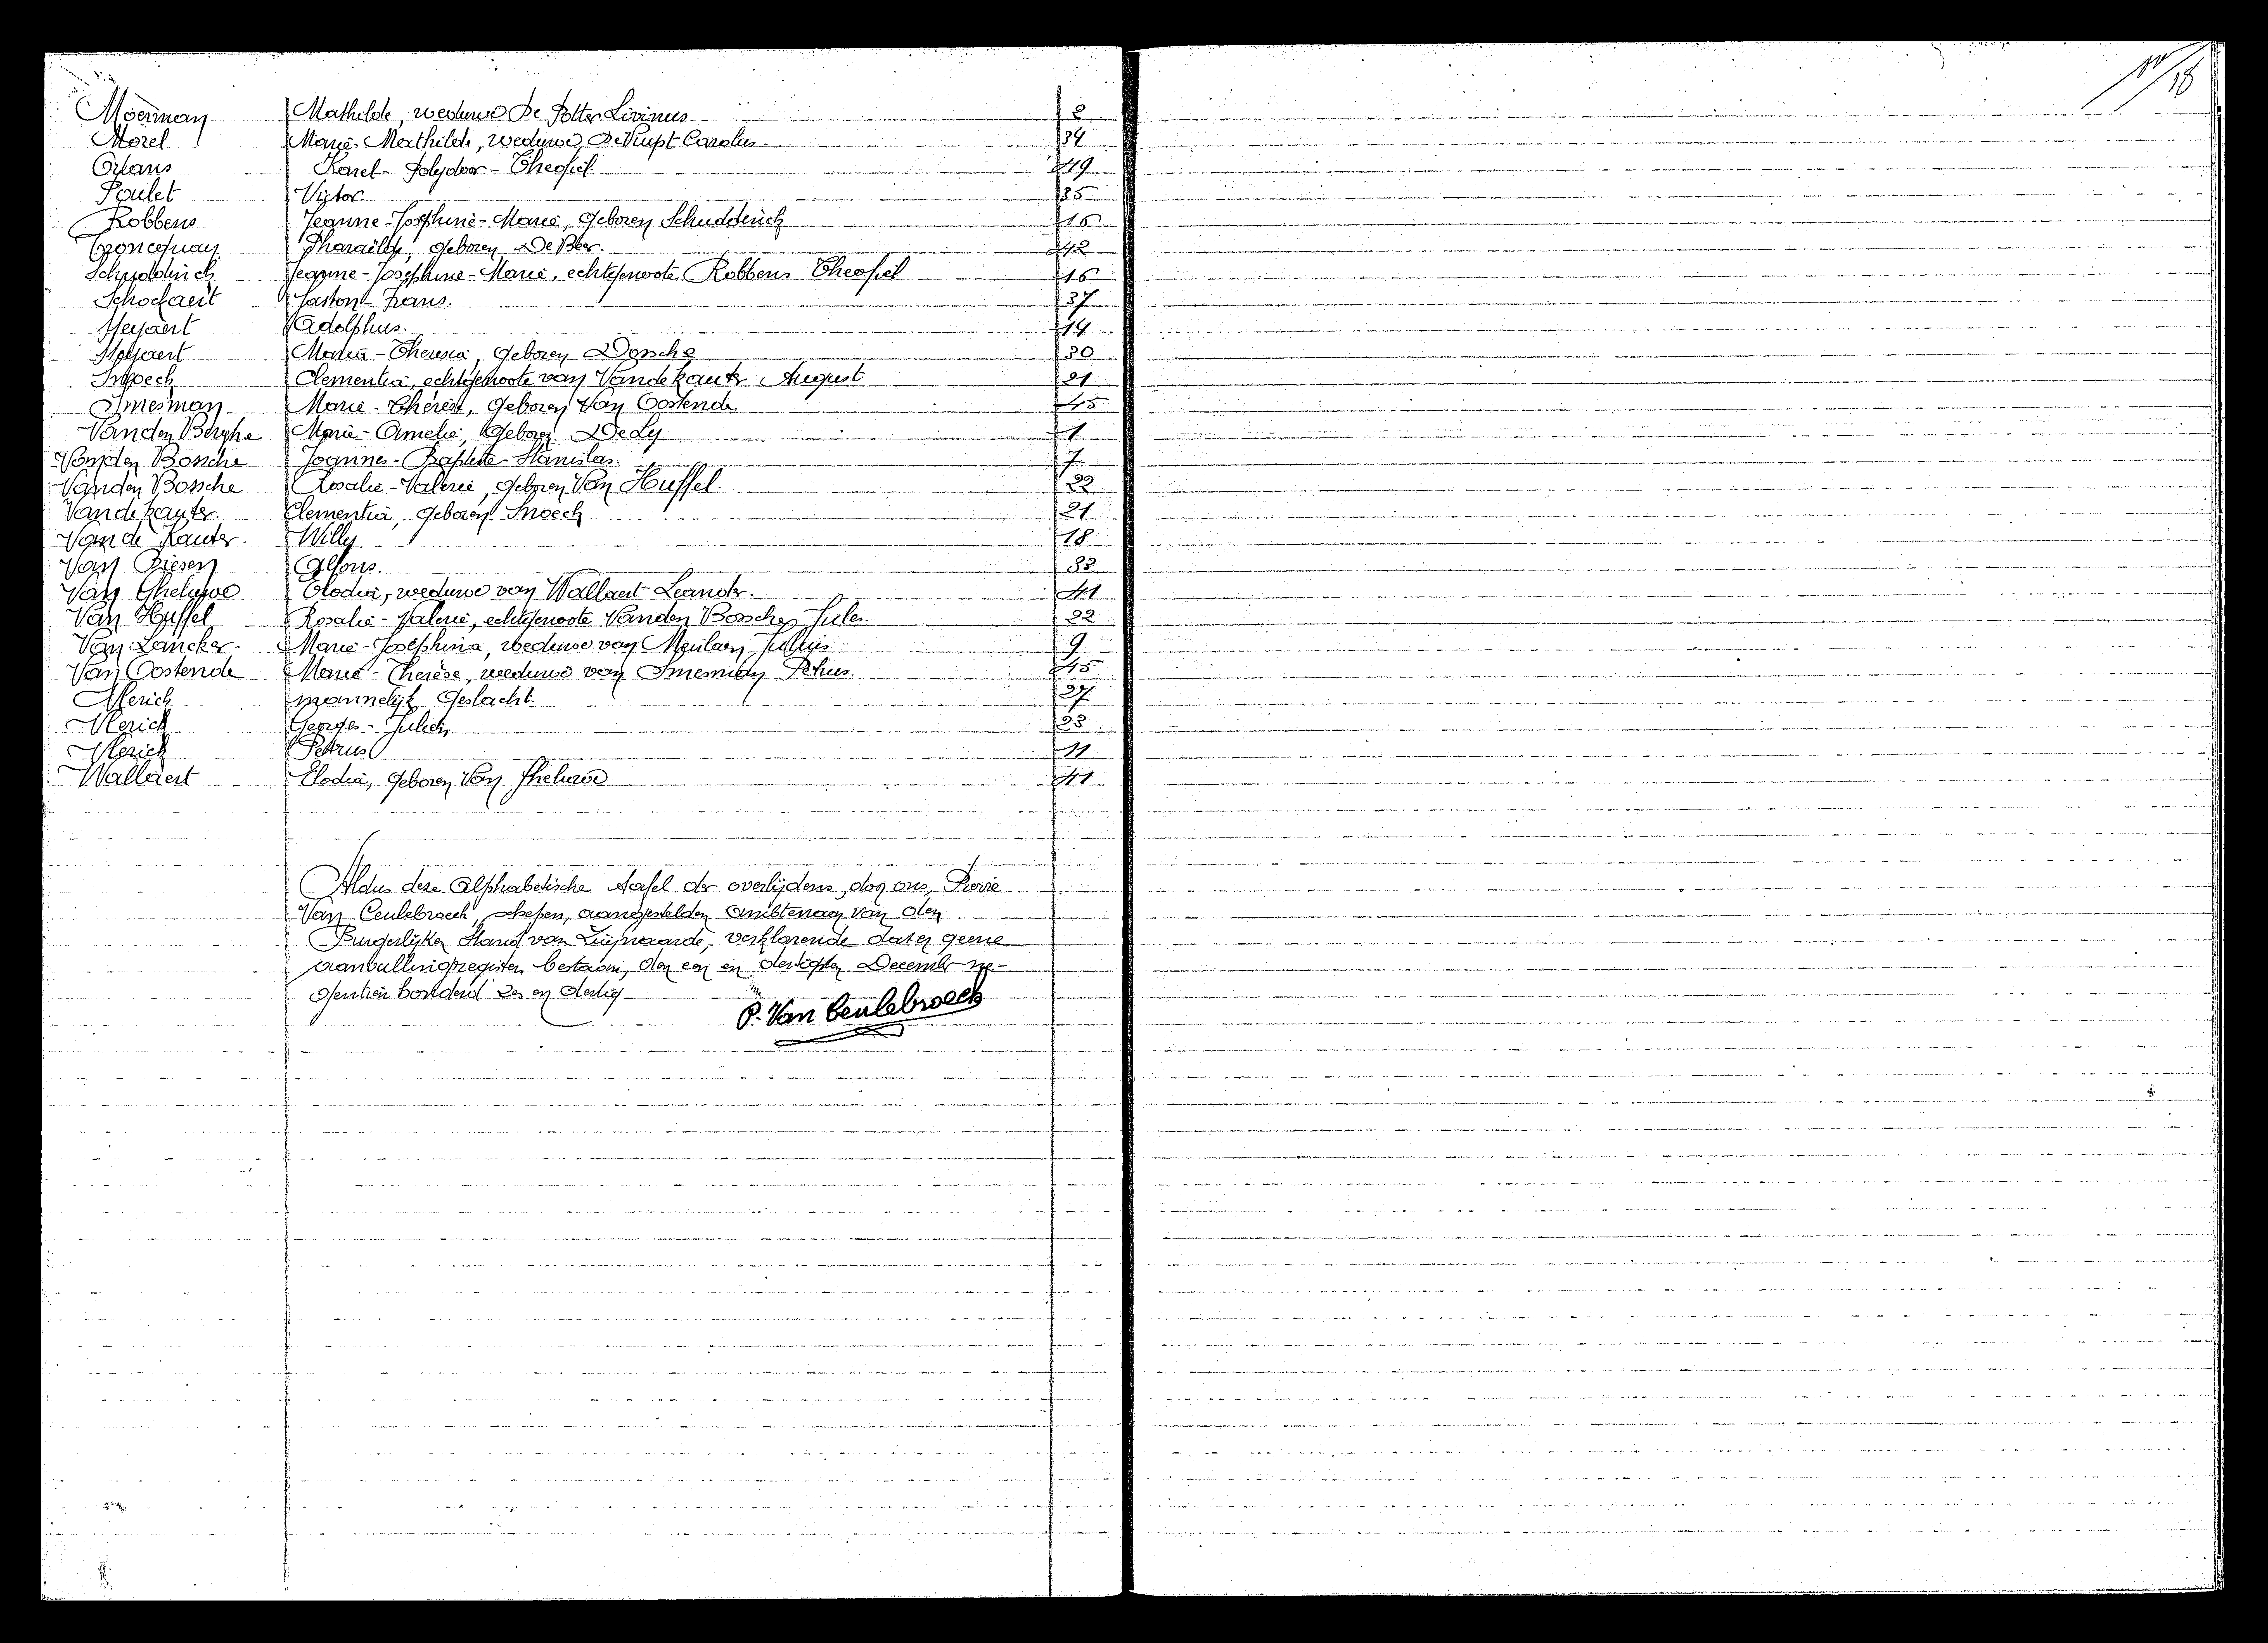 18
Moerman Mathilde, weduwe De Potter Livinus 2
Morel Marie-Mathilde, weduwe Carolus 34
Orlans Karel-Polydoor-Theofiel 49
Poulet Victor 35
Robbens Jeanne-Josephine-Marie, geboren Schudderich 16
Pharaïlde, geboren De Beer 42
Schudderich Jeanne-Josephine-Marie, echtgenoote Robbens Theofiel 16
Schockaert Gaston-Frans 37
Adolphus 14
Maria-Theresia, geboren 30
Snoeck Clementia, echtgenoote van Vandekauter August 21
Smesman Marie-Thérèse, geboren Van Oostende 45
Vanden Berghe Marie-Amelie, geboren 1
Vanden Bossche Joannes-Baptiste-Stanislas 7
Vanden Bossche Rosalie-Valerie, geboren Van Huffel 22
Vandekauter Clementia, geboren Snoeck 21
Van de Kauter Willy 18
Van Alfons 33
Van Gheluwe Elodia, weduwe van Wallaert Leander 41
Van Huffel Rosalie-Valerie, echtgenoote Vanden Bossche Jules 22
Van Lancker Marie-Josephina, weduwe van Meulaen Julius 9
Van Oostende Marie-Thérèse, weduwe van Smesman Petrus 45
Vlerick mannelijk Geslacht 27
Vlerick Georges-Julien 23
Vlerick Petrus 11
Wallaert Elodia, geboren Van Gheluwe 41
Aldus deze alphabetische tafel der overlijdens, door ons, Pierre
Van Ceulebroeck, schepen, aangestelden ambtenaar van den
Burgerlijken Stand van Zwijnaarde, verklarende dat er geene
aanvullingsregisters bestaan, den een en dertigsten December ne-
gentien honderd zes en dertig
P. Van Ceulebroeck